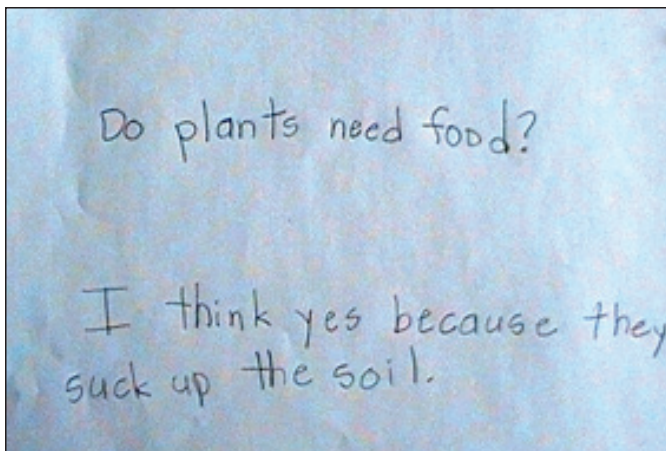 Do plants need food?
I think yes because they
suck up the soil.